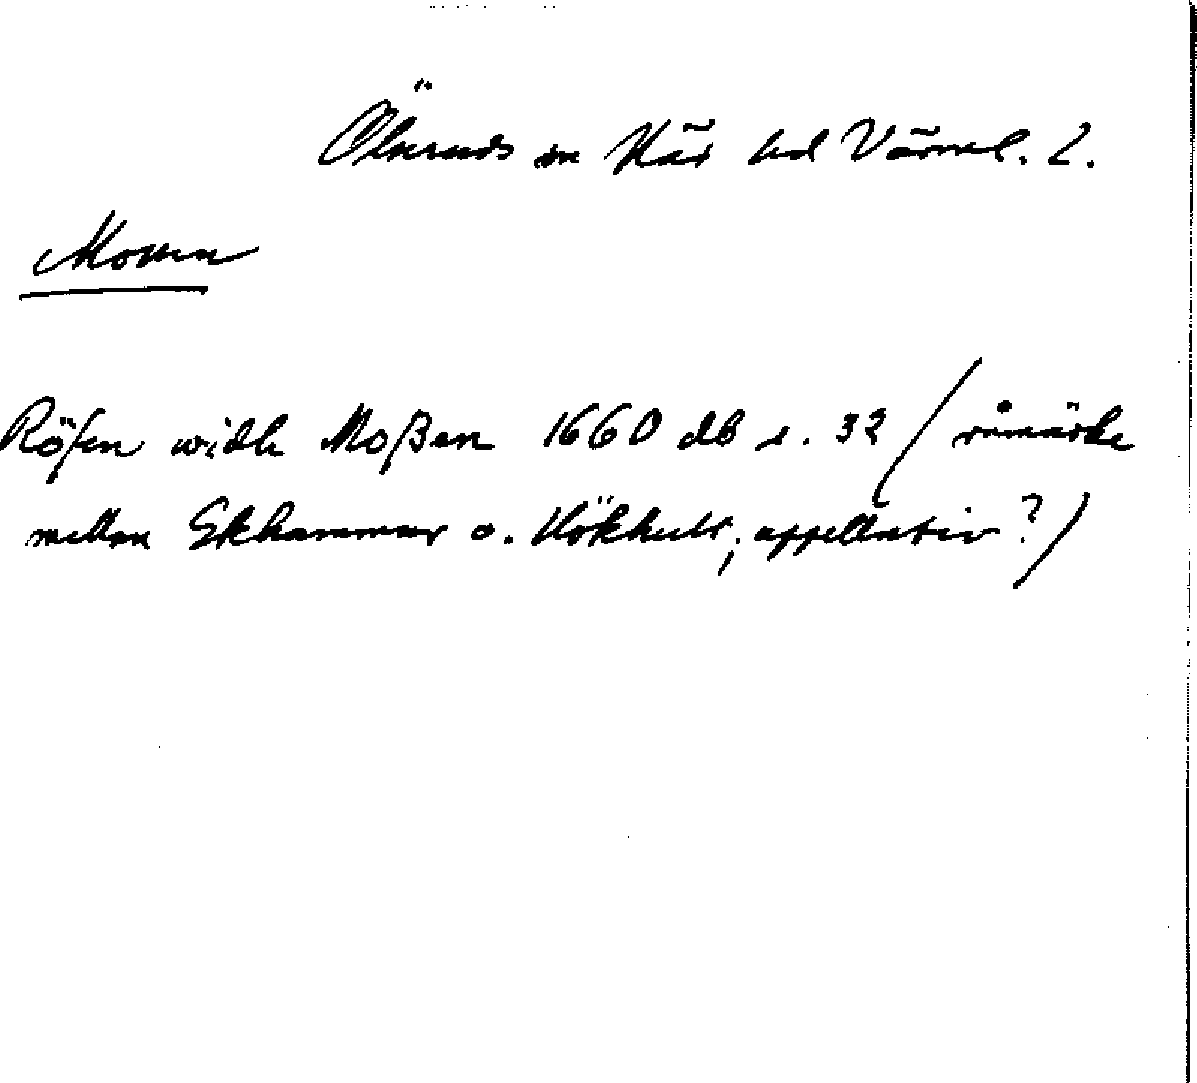 Ölseruds sn Näs hd Värml. l.
Mossen
Rösen widh Moßen 1660 db s. 32 (råmärke
mellan Ekhammar o. Hökhult; appellativ?)